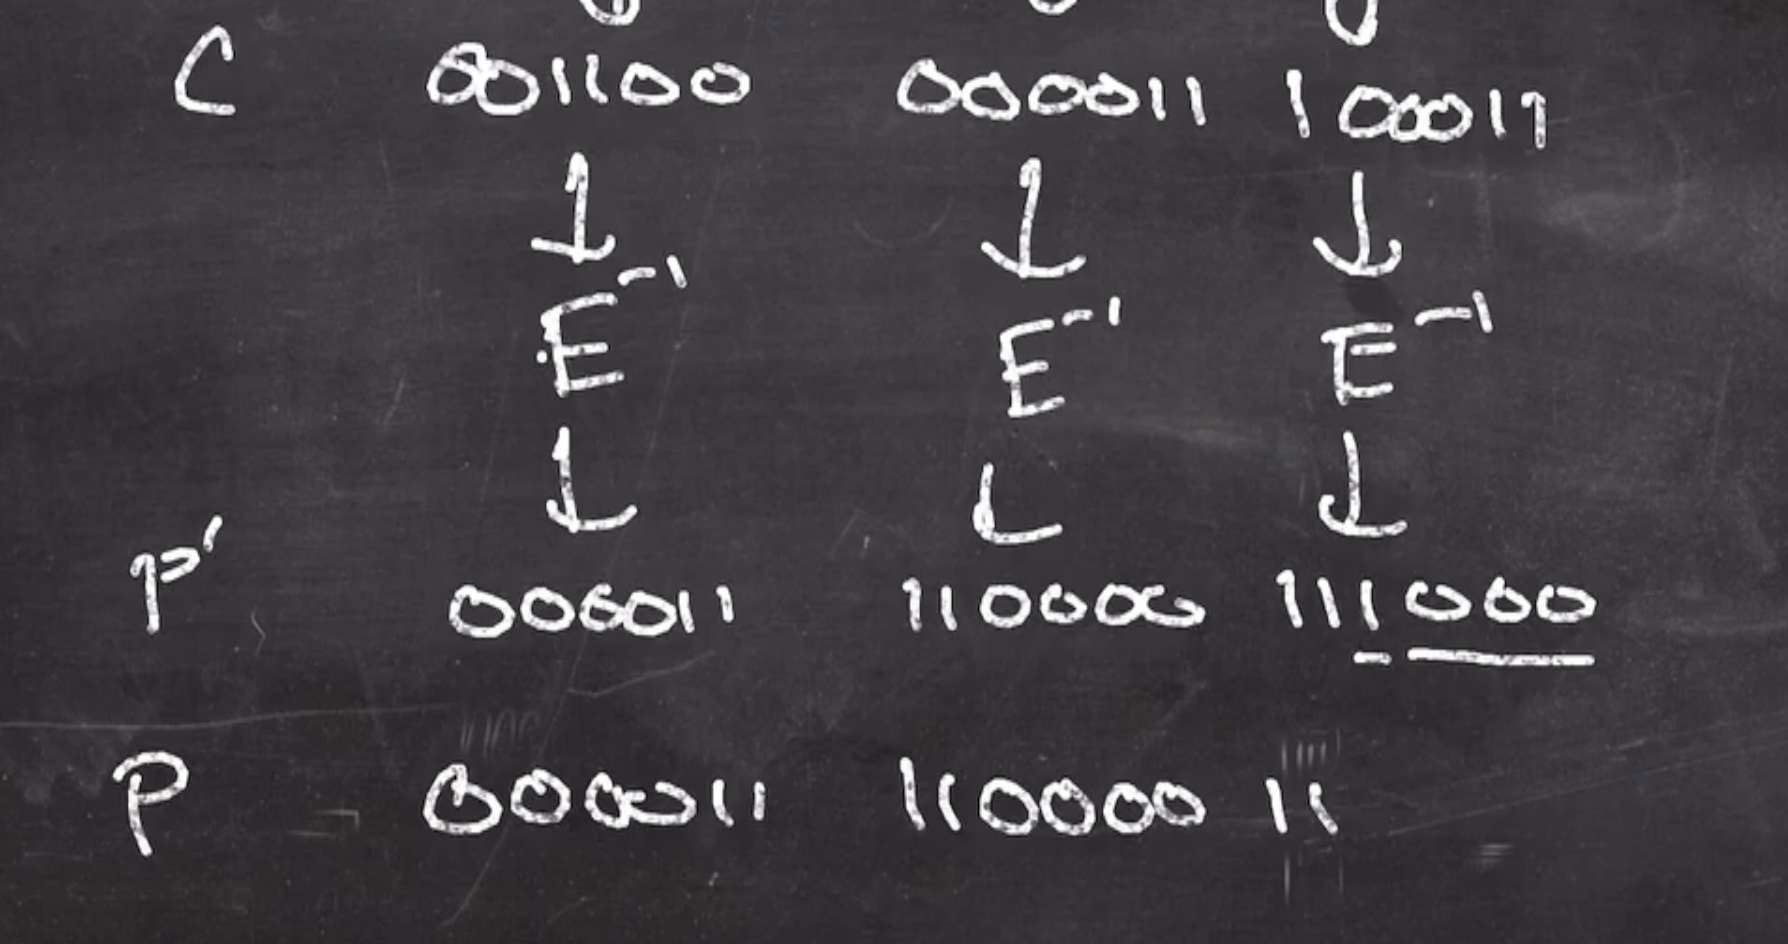 C 001100 000011 100011
E⁻¹ E⁻¹ E⁻¹
P' 000011 110000 111000
P 000011 110000 11